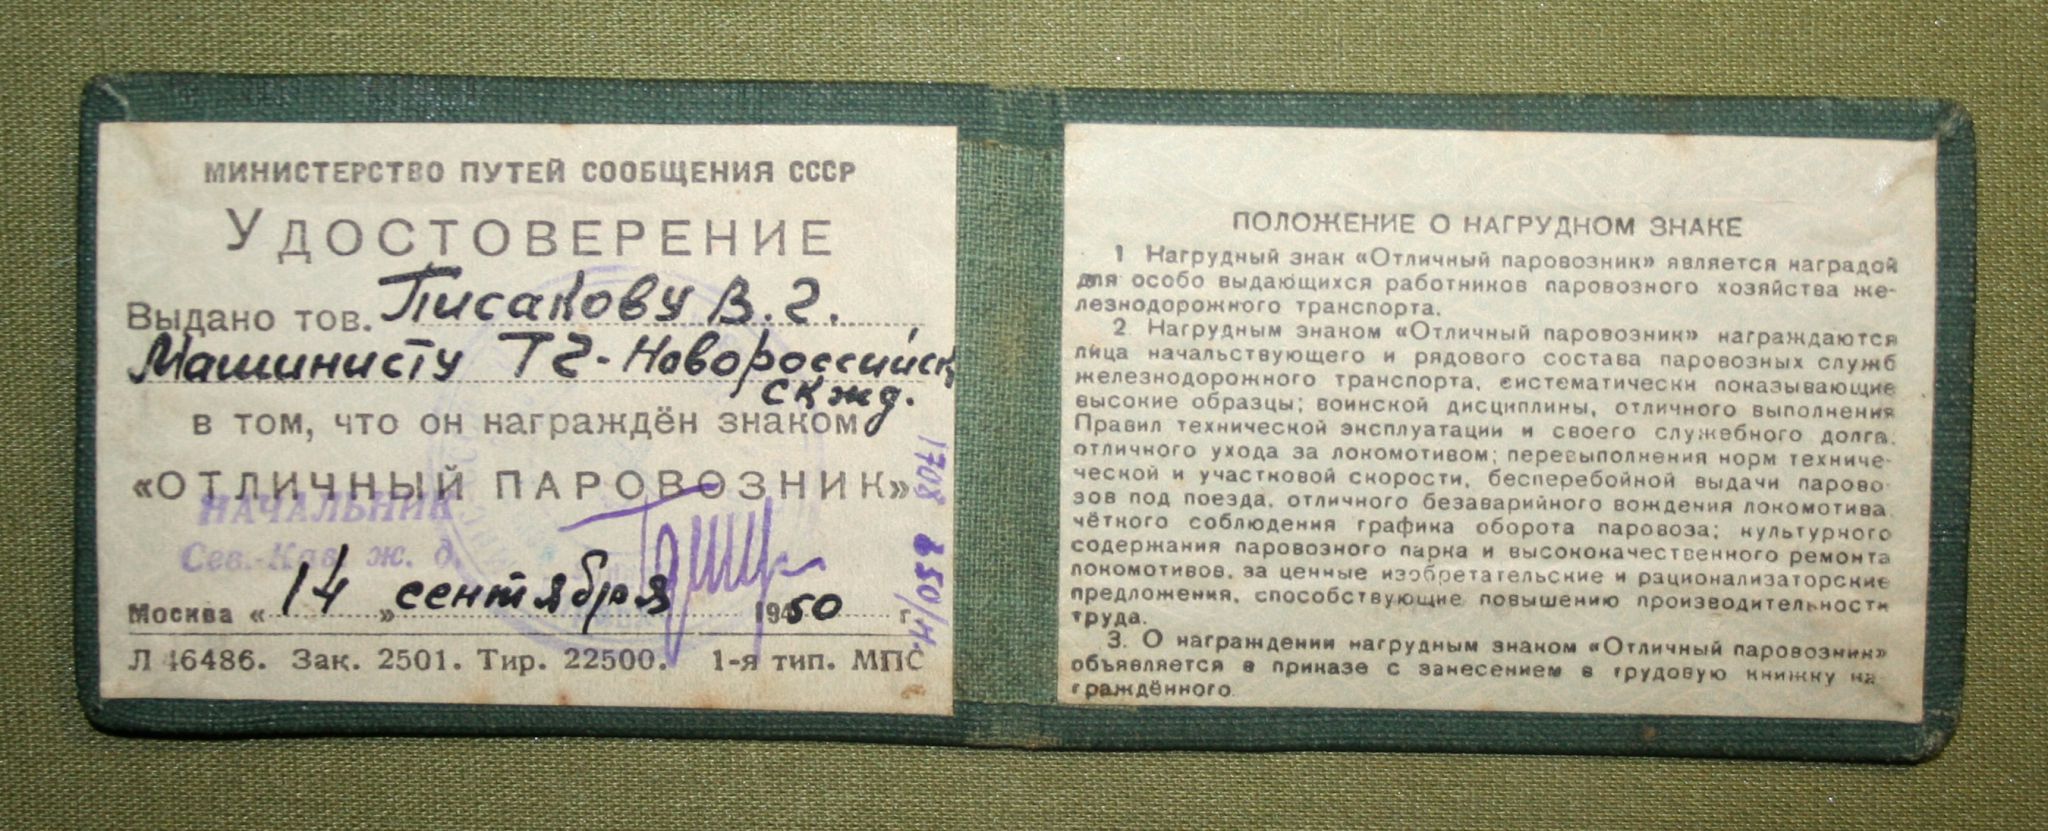 МИНИСТЕРСТВО ПУТЕЙ СООБЩЕНИЯ СССР
УДОСТОВЕРЕНИЕ
Выдано тов. Писакову В. Г.
Машинисту ТЧ-Новороссийск
СКжд.
в том, что он награждён знаком
«ОТЛИЧНЫЙ ПАРОВОЗНИК»
НАЧАЛЬНИК
Сев.-Кав. ж. д.
Москва « 14 » сентября 1950 г.
Л 46486. Зак. 2501. Тир. 22500. 1-я тип. МПС
ПОЛОЖЕНИЕ О НАГРУДНОМ ЗНАКЕ
1 Нагрудный знак «Отличный паровозник» является наградой
для особо выдающихся работников паровозного хозяйства же-
лезнодорожного транспорта.
2. Нагрудным знаком «Отличный паровозник» награждаются
лица начальствующего и рядового состава паровозных служб
железнодорожного транспорта, систематически показывающие
высокие образцы; воинской дисциплины, отличного выполнения
Правил технической эксплуатации и своего служебного долга.
отличного ухода за локомотивом; перевыполнения норм техниче-
ческой и участковой скорости, бесперебойной выдачи парово-
зов под поезда, отличного безаварийного вождения локомотива
чёткого соблюдения графика оборота паровоза; культурного
содержания паровозного парка и высококачественного ремонта
локомотивов, за ценные изобретательские и рационализаторские
предложения, способствующие повышению производительности
труда.
3. О награждении нагрудным знаком «Отличный паровозник»
объявляется в приказе с занесением в трудовую книжку на
граждённого.